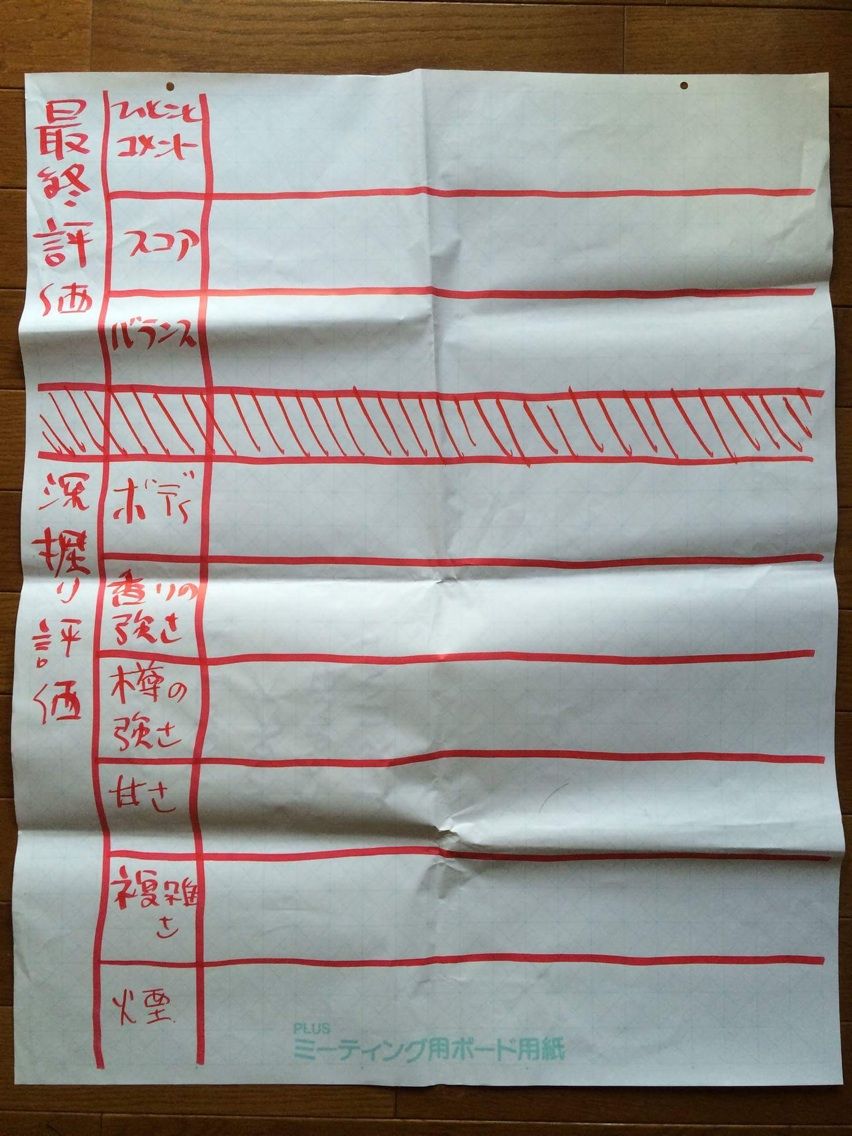 最終評価
ひとこと
コメント
スコア
バランス
深掘り評価
ボディ
香りの
強さ
樽の
強さ
甘さ
複雑
さ
煙
PLUS
ミーティング用ボード用紙